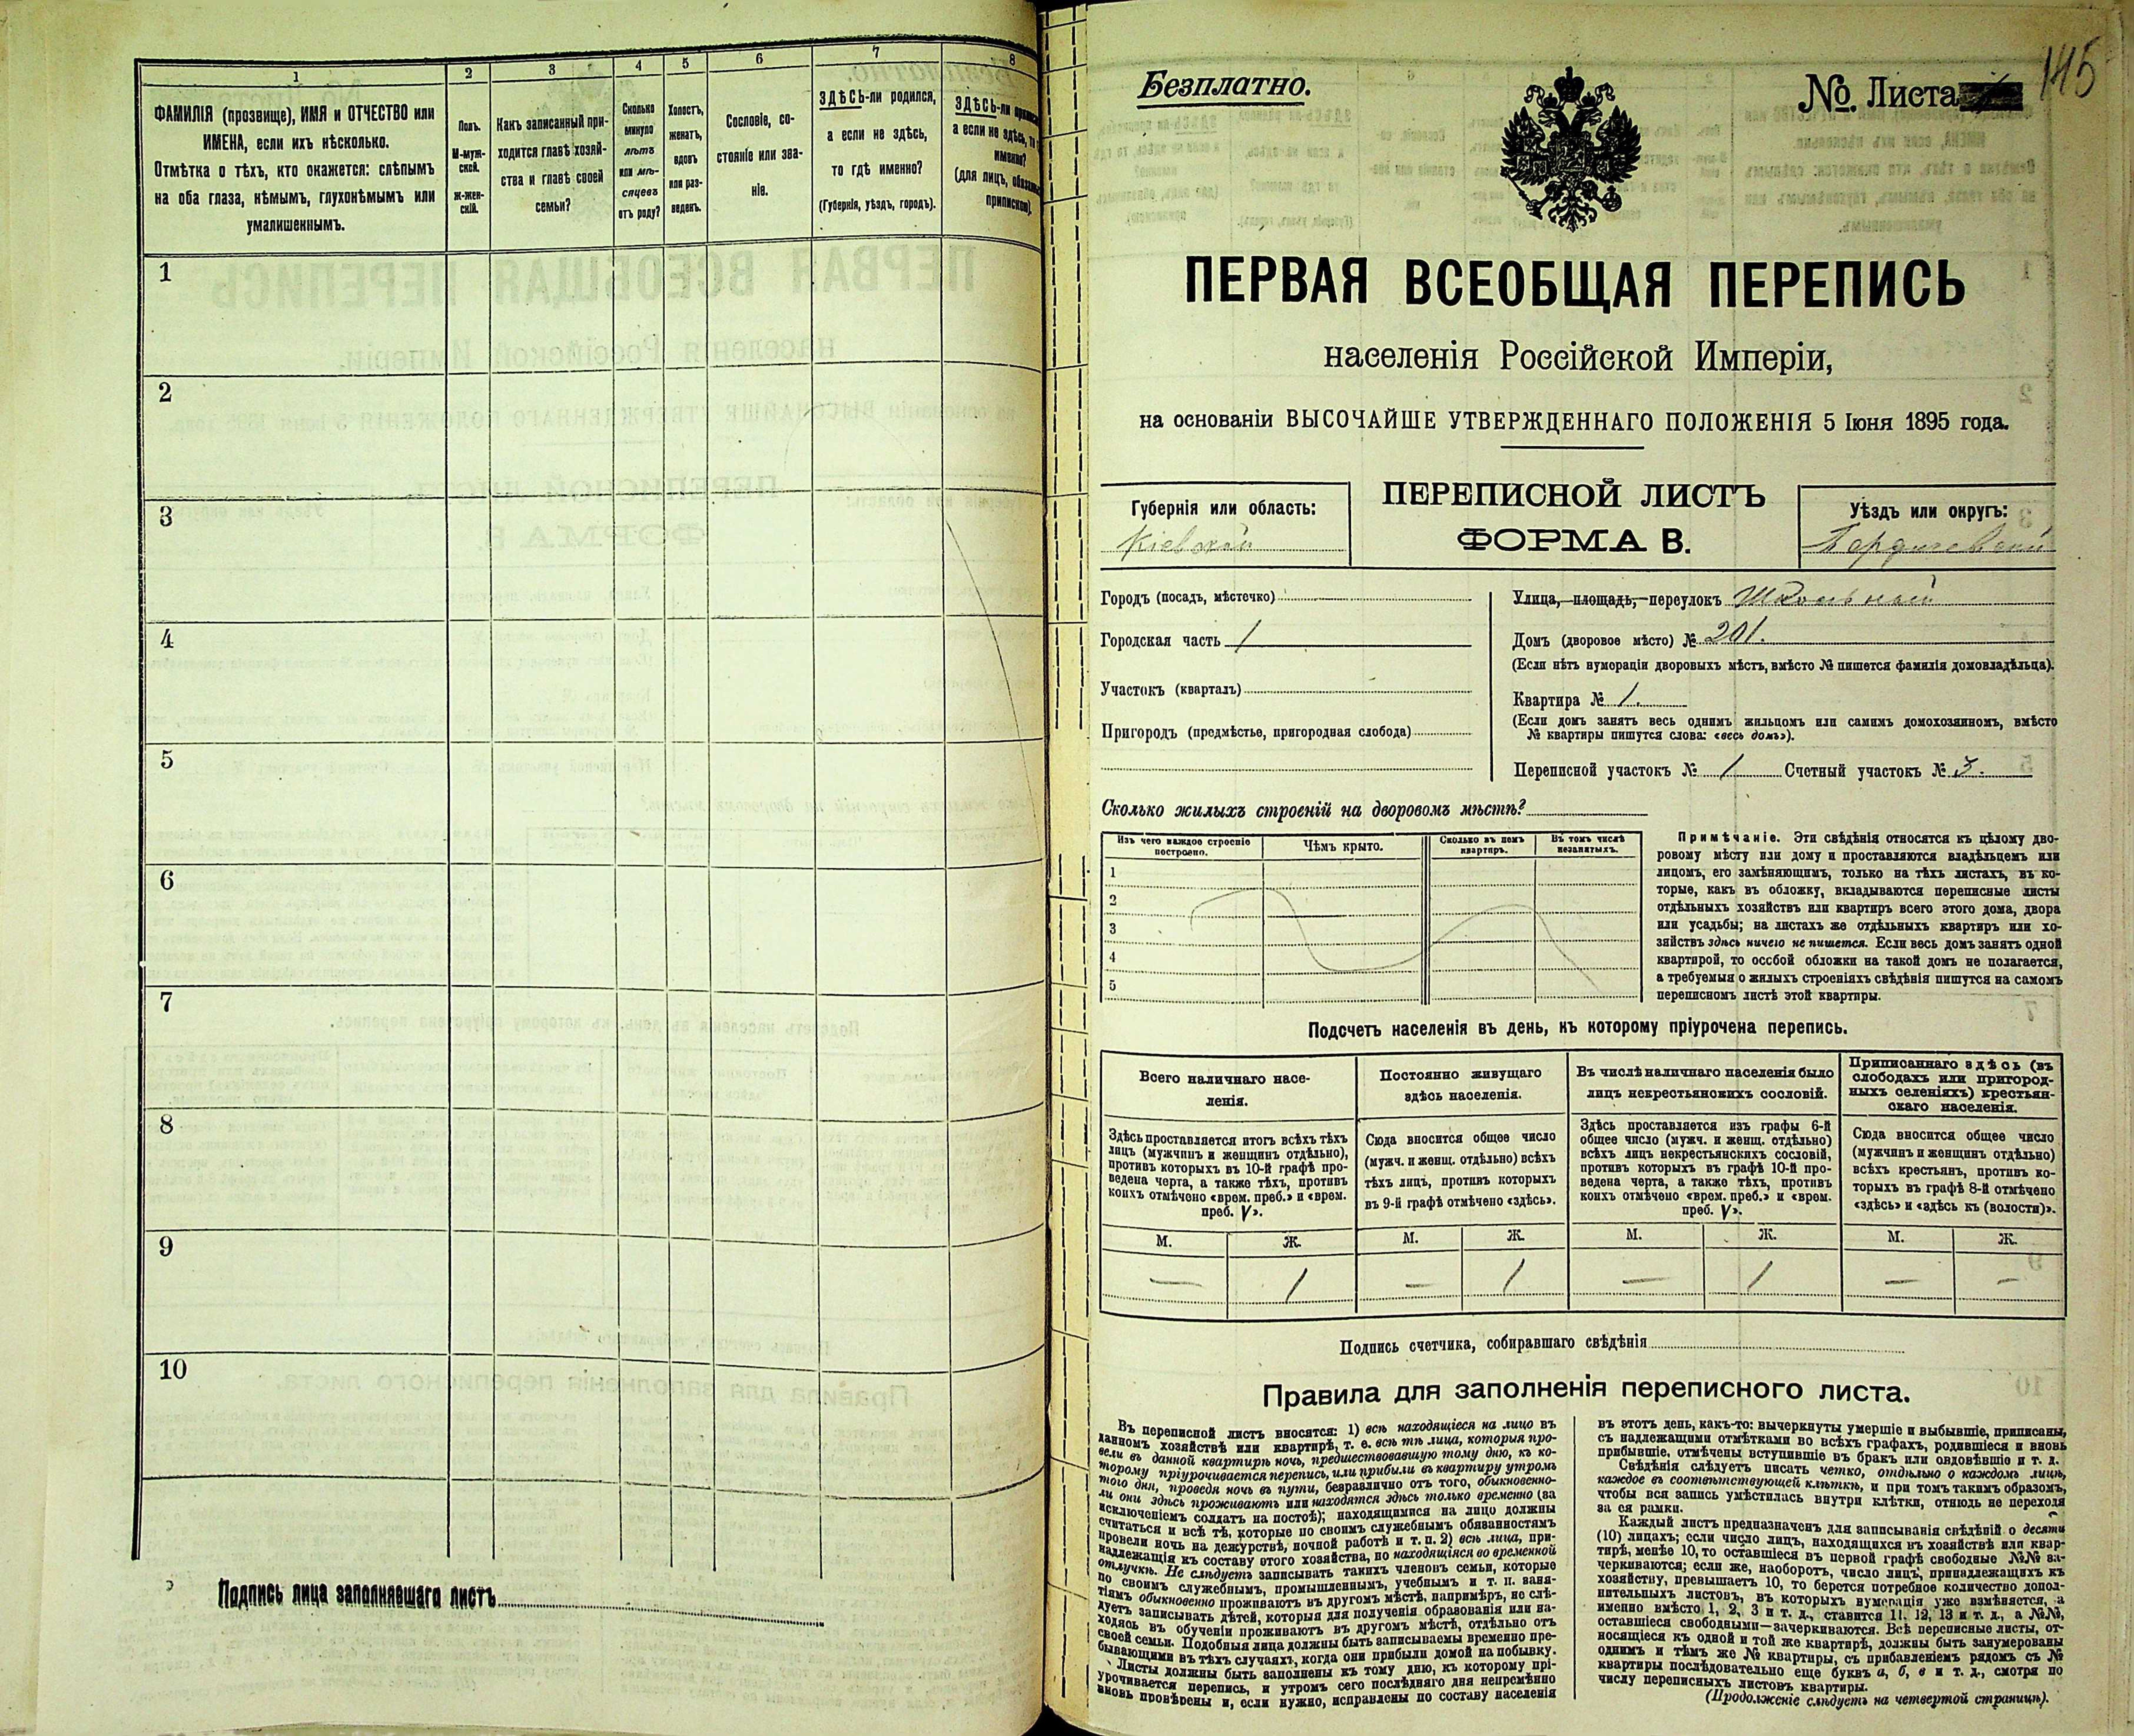 1
2
3
4
5
6
7
8
ФАМИЛІЯ (прозвище), ИМЯ и ОТЧЕСТВО или
ИМЕНА, если ихъ нѣсколько.
Отмѣтка о тѣхъ, кто окажется: слѣпымъ
на оба глаза, нѣмымъ, глухонѣмымъ или
умалишеннымъ.
Полъ.
М-муж-
ской.
Ж-жен-
скій.
Какъ записанный при-
ходится главѣ хозяй-
ства и главѣ своей
семьи?
Сколько
минуло
лѣтъ
или мѣ-
сяцевъ
отъ роду?
Холостъ,
женатъ,
вдовъ
или раз-
веденъ.
Сословіе, со-
стояніе или зва-
ніе.
ЗДѢСЬ-ли родился,
а если не здѣсь,
то гдѣ именно?
(Губернія, уѣздъ, городъ).
ЗДѢСЬ-ли
а если не здѣсь,
именно?
(для лицъ,
припискою).
1
2
3
4
5
6
7
8
9
10
Подпись лица заполнявшаго листъ
Безплатно.
№. Листа
145
ПЕРВАЯ ВСЕОБЩАЯ ПЕРЕПИСЬ
населенія Россійской Имперіи,
на основаніи ВЫСОЧАЙШЕ УТВЕРЖДЕННАГО ПОЛОЖЕНІЯ 5 Іюня 1895 года.
Губернія или область:
Кіевской
ПЕРЕПИСНОЙ ЛИСТЪ
ФОРМА В.
Уѣздъ или округъ:
Бердичевскій
Городъ (посадъ, мѣстечко)
Городская часть 1
Участокъ (кварталъ)
Пригородъ (предмѣстье, пригородная слобода)
Улица, площадь, переулокъ Школьный
Домъ (дворовое мѣсто) № 201.
(Если нѣтъ нумораціи дворовыхъ мѣстъ, вмѣсто № пишется фамилія домовладѣльца).
Квартира № 1.
(Если домъ занятъ весь однимъ жильцомъ или самимъ домохозяиномъ, вмѣсто
№ квартиры пишутся слова: «весь домъ»).
Переписной участокъ № 1 Счетный участокъ № 3.
Сколько жилыхъ строеній на дворовомъ мѣстѣ?
Изъ чего каждое строеніе
построено.
Чѣмъ крыто.
Сколько въ немъ
квартиръ.
Въ томъ числѣ
незанятыхъ.
1
2
3
4
5
Примѣчаніе. Эти свѣдѣнія относятся къ цѣлому дво-
ровому мѣсту или дому и проставляются владѣльцемъ или
лицомъ, его замѣняющимъ, только на тѣхъ листахъ, въ ко-
торые, какъ въ обложку, вкладываются переписные листы
отдѣльныхъ хозяйствъ или квартиръ всего этого дома, двора
или усадьбы; на листахъ же отдѣльныхъ квартиръ или хо-
зяйствъ здѣсь ничего не пишется. Если весь домъ занятъ одной
квартирой, то оссбой обложки на такой домъ не полагается,
а требуемыя о жилыхъ строеніяхъ свѣдѣнія пишутся на самомъ
переписномъ листѣ этой квартиры.
Подсчетъ населенія въ день, къ которому пріурочена перепись.
Всего наличнаго насе-
ленія.
Здѣсь проставляется итогъ всѣхъ тѣхъ
лицъ (мужчинъ и женщинъ отдѣльно),
противъ которыхъ въ 10-й графѣ про-
ведена черта, а также тѣхъ, противъ
коихъ отмѣчено «врем. преб.» и «врем.
преб. V».
Постоянно живущаго
здѣсь населенія.
Сюда вносится общее число
(мужч. и женщ. отдѣльно) всѣхъ
тѣхъ лицъ, противъ которыхъ
въ 9-й графѣ отмѣчено «здѣсь».
Въ числѣ наличнаго населенія было
лицъ некрестьянскихъ сословій.
Здѣсь проставляется изъ графы 6-й
общее число (мужч. и женщ. отдѣльно)
всѣхъ лицъ некрестьянскихъ сословій,
противъ которыхъ въ графѣ 10-й про-
ведена черта, а также тѣхъ, противъ
коихъ отмѣчено «врем. преб.» и «врем.
преб. V».
Приписаннаго здѣсь (въ
слободахъ или пригород-
ныхъ селеніяхъ) крестьян-
скаго населенія.
Сюда вносится общее число
(мужчинъ и женщинъ отдѣльно)
всѣхъ крестьянъ, противъ ко-
торыхъ въ графѣ 8-й отмѣчено
«здѣсь» и «здѣсь къ (волости)».
М. Ж. М. Ж. М. Ж. М. Ж.
— 1 — 1 — 1 — —
Подпись счетчика, собиравшаго свѣдѣнія
Правила для заполненія переписного листа.
Въ переписной листъ вносятся: 1) всѣ находящіеся на лицо въ
данномъ хозяйствѣ или квартирѣ, т. е. всѣ тѣ лица, которыя про-
вели въ данной квартирѣ ночь, предшествовавшую тому дню, къ ко-
торому пріурочивается перепись, или прибыли въ квартиру утромъ
того дня, проведя ночь въ пути, безразлично отъ того, обыкновенно-
ли они здѣсь проживаютъ или находятся здѣсь только временно (за
исключеніемъ солдатъ на постоѣ); находящимися на лицо должны
считаться и всѣ тѣ, которые по своимъ служебнымъ обязанностямъ
провели ночь на дежурствѣ, ночной работѣ и т. п. 2) всѣ лица, при-
надлежащія къ составу этого хозяйства, но находящіяся во временной
отлучкѣ. Не слѣдуетъ записывать такихъ членовъ семьи, которые
по своимъ служебнымъ, промышленнымъ, учебнымъ и т. п. заня-
тіямъ обыкновенно проживаютъ въ другомъ мѣстѣ, напримѣръ, не слѣ-
дуетъ записывать дѣтей, которыя для полученія образованія или на-
ходясь въ обученіи проживаютъ въ другомъ мѣстѣ, отдѣльно отъ
своей семьи. Подобныя лица должны быть записываемы временно пре-
бывающими въ тѣхъ случаяхъ, когда они прибыли домой на побывку.
Листы должны быть заполнены къ тому дню, къ которому прі-
урочивается перепись, и утромъ сего послѣдняго дня непремѣнно
вновь провѣрены и, если нужно, исправлены по составу населенія
въ этотъ день, какъ-то: вычеркнуты умершіе и выбывшіе, приписаны,
съ надлежащими отмѣтками во всѣхъ графахъ, родившіеся и вновь
прибывшіе, отмѣчены вступившіе въ бракъ или овдовѣвшіе и т. д.
Свѣдѣнія слѣдуетъ писать четко, отдѣльно о каждомъ лицѣ,
каждое въ соотвѣтствующей клѣткѣ, и при томъ такимъ образомъ,
чтобы вся запись умѣстилась внутри клѣтки, отнюдь не переходя
за ея рамки.
Каждый листъ предназначенъ для записыванія свѣдѣній о десяти
(10) лицахъ; если число лицъ, находящихся въ хозяйствѣ или квар-
тирѣ, менѣе 10, то оставшіеся въ первой графѣ свободные №№ за-
черкиваются; если же, наоборотъ, число лицъ, принадлежащихъ къ
хозяйству, превышаетъ 10, то берется потребное количество допол-
нительныхъ листовъ, въ которыхъ нумерація уже измѣняется, а
именно вмѣсто 1, 2, 3 и т. д., ставится 11, 12, 13 и т. д., а №№,
оставшіеся свободными—зачеркиваются. Всѣ переписные листы, от-
носящіеся къ одной и той же квартирѣ, должны быть занумерованы
однимъ и тѣмъ же № квартиры, съ прибавленіемъ рядомъ съ №
квартиры послѣдовательно еще буквъ а, б, в и т. д., смотря по
числу переписныхъ листовъ квартиры.
(Продолженіе слѣдуетъ на четвертой страницѣ).